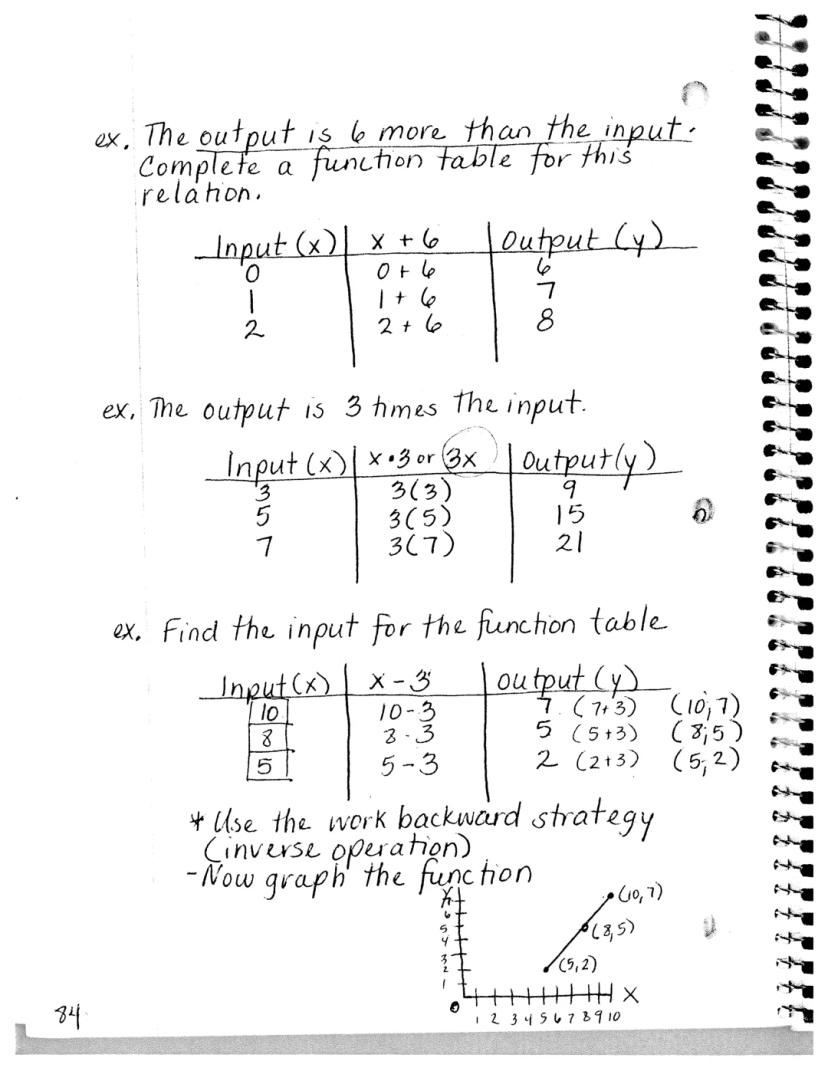 ex. The output is 6 more than the input.
Complete a function table for this
relation.
Input (x) | x + 6 | Output (y)
0 | 0 + 6 | 6
1 | 1 + 6 | 7
2 | 2 + 6 | 8
ex. The output is 3 times the input.
Input (x) | x • 3 or 3x | Output (y)
3 | 3(3) | 9
5 | 3(5) | 15
7 | 3(7) | 21
ex. Find the input for the function table
Input (x) | x - 3 | output (y)
10 | 10-3 | 7 (7+3) (10,7)
8 | 8-3 | 5 (5+3) (8,5)
5 | 5-3 | 2 (2+3) (5,2)
* Use the work backward strategy
(inverse operation)
- Now graph the function
Y
7
6
5
4
3
2
1
0
(10,7)
(8,5)
(5,2)
X
1 2 3 4 5 6 7 8 9 10
84